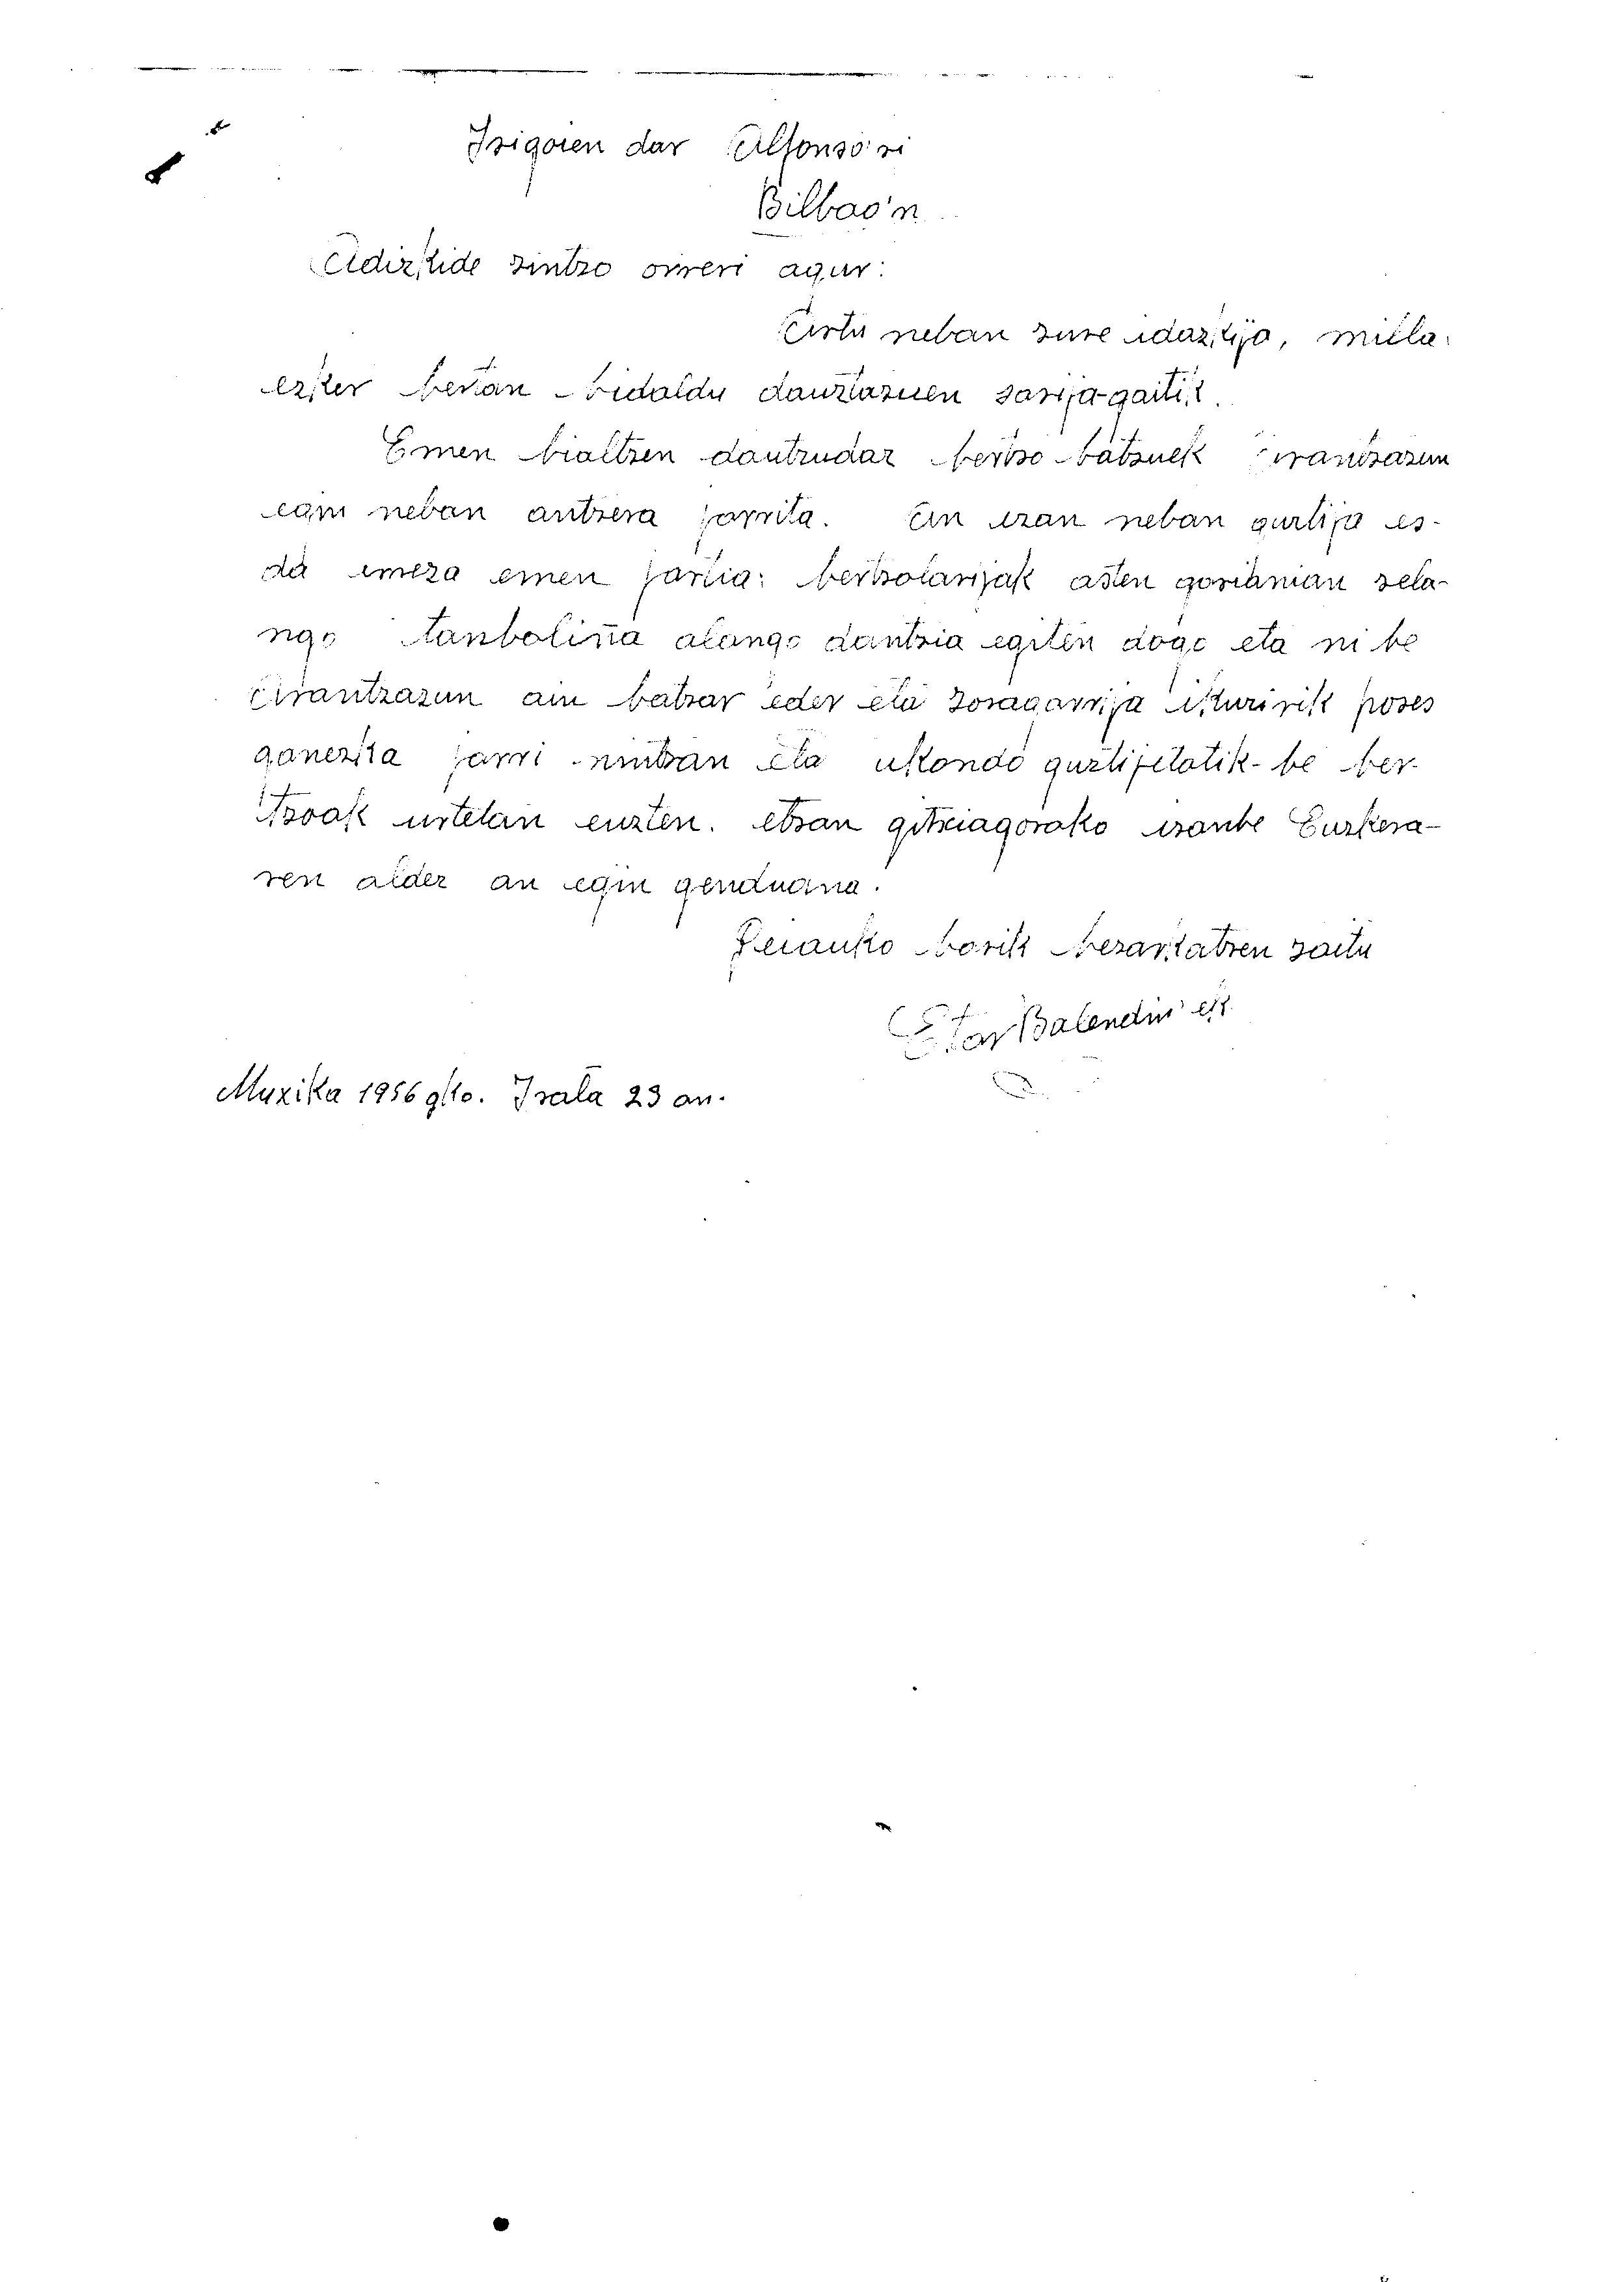 Irigoien dar Alfonso'ri
Bilbao'n
Adizkide zintzo orreri agur:
Artu neban zure idaztija, milla
ezker bertan bidaldu dauztazuen sarija-gaitik.
Emen bialtzen dautzudaz bertso batzuek Arantzazun
egin neban antzera jarrita. An izan neban guztija es-
da emeza emen jartia: bertsolarijak asten garianian zela-
ngo tanbolina alango dantzia egiten dogo eta ni be
Arantzazun ain batzar eder eta zoragarrija ikusirik poses
ganezka jarri nintzan eta ukondo guztijetatik-be ber-
tsoak urtetan eusten. etzan gitxiagorako izanbe Euzkera-
ren aldez an egin genduana.
Benetako Borik besarkatzen zaitu
Balendin'ek
Muxika 1956 gko. Irala 23 an.